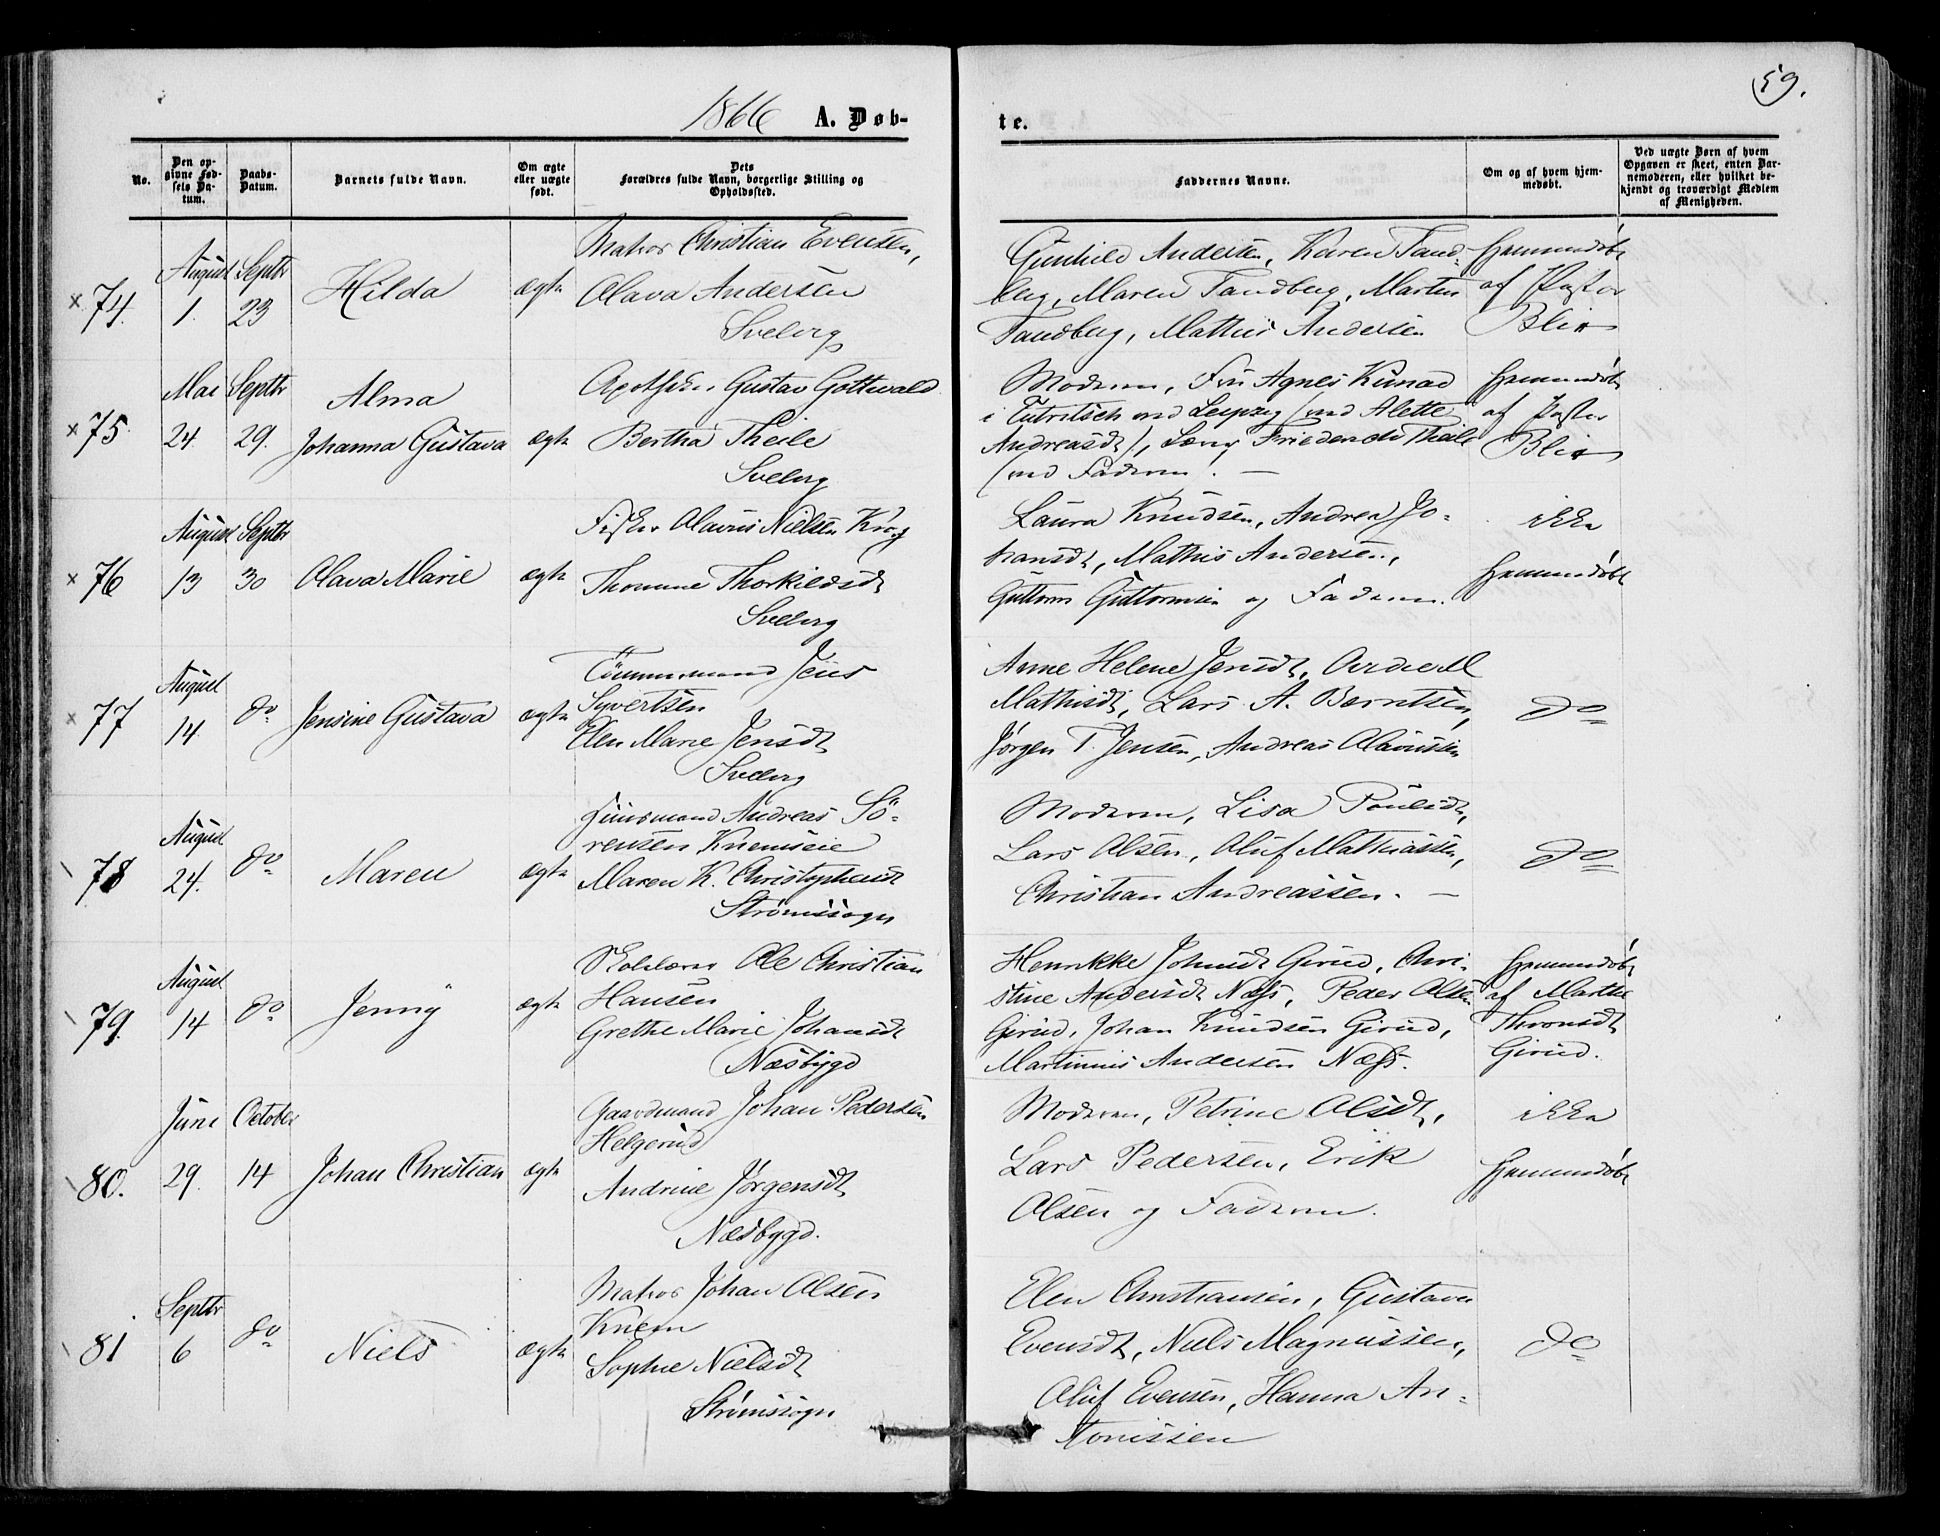 59.
1866 A. Døb-
te.
No.
Den op-
givne Fød-
sels Da-
tum.
Daabs-
Datum.
Barnets fulde Navn.
Om ægte
eller uægte
født.
Dets
Forældres fulde Navn, borgerlige Stilling og
Opholdssted.
Faddernes Navne.
Om og af hvem hjem-
medøbt.
Ved uægte Børn af hvem
Opgaven er skeet, enten Bar-
nemoderen, eller hvilket be-
kjendt og troværdigt Medlem
af Menigheden.
× 74.
August
1.
Septbr
23
Hilda
ægte
Matros Christian Evensen,
Olava Andersen
Svelvig
Gunhild Andersen, Karen Tand-
berg, Maren Tandberg, Marten
Tandberg, Mathis Andersen
Hjemmedøbt
af Pastor
Blix
× 75.
Mai
24.
Septbr
29.
Alma
Johanna Gustava
ægte
Apotheker Gustav Gottwald
Bertha Theile
Svelvig
Moderen, Fru Agnes Kunad
i Eutritsch ved Leipzig (ved Alette
Andreasdt), Friederich Theile
(ved Faderen). —
Hjemmedøbt
af Pastor
Blix
× 76
August
13
Septbr
30
Olava Marie
ægte
Fisker Olavus Nielsen Krog
Thomine Thorkildsdt
Svelvig
Laura Knudsen, Andrea Jo-
hansdt, Mathis Andersen,
Guttorm Guttormsen og Faderen.
ikke
Hjemmedøbt
× 77
August
14.
do
Jensine Gustava
ægte
Tømmermand Jens
Syvertsen
Elen Marie Jensdt
Svelvig
Anne Helene Jensdt,
Mathisdt, Lars A. Berntsen,
Jørgen T. Jensen, Andreas Olavussen
do
78
August
24.
do
Maren
ægte
Huusmand Andreas Sö-
rensen Knemseie
Maren K. Christophersdt
Strømssogn
Moderen, Lisa Poulsdt,
Lars Olsen, Oluf Mathiassen,
Christian Andreassen. —
do
79.
August
14
do
Jenny
ægte
Skolelærer Ole Christian
Hansen
Grethe Marie Johansdt
Næsbygd
Henrikke Johnsdt Girud, Chri-
stine Andersdt Næss, Peder Olsen
Girud, Johan Knudsen Girud,
Martinius Andersen Næss.
Hjemmedøbt
af Marthe
Thronsdt
Girud.
80.
Juni
29.
October
14
Johan Christian
ægte
Gaardmand Johan Pedersen
Helgerud
Andrine Jørgensdt
Næsbygd.
Moderen, Petrine Olsdt,
Lars Pedersen, Erik
Olsen og Faderen.
ikke
Hjemmedøbt
81
Septbr
6
do
Niels
ægte
Matros Johan Olsen
Knem
Sophie Nielsdt
Strømssogn
Elen Christiansen, Gustava
Evensdt, Niels Magnussen,
Oluf Evensen, Hanna An-
tonissen
do